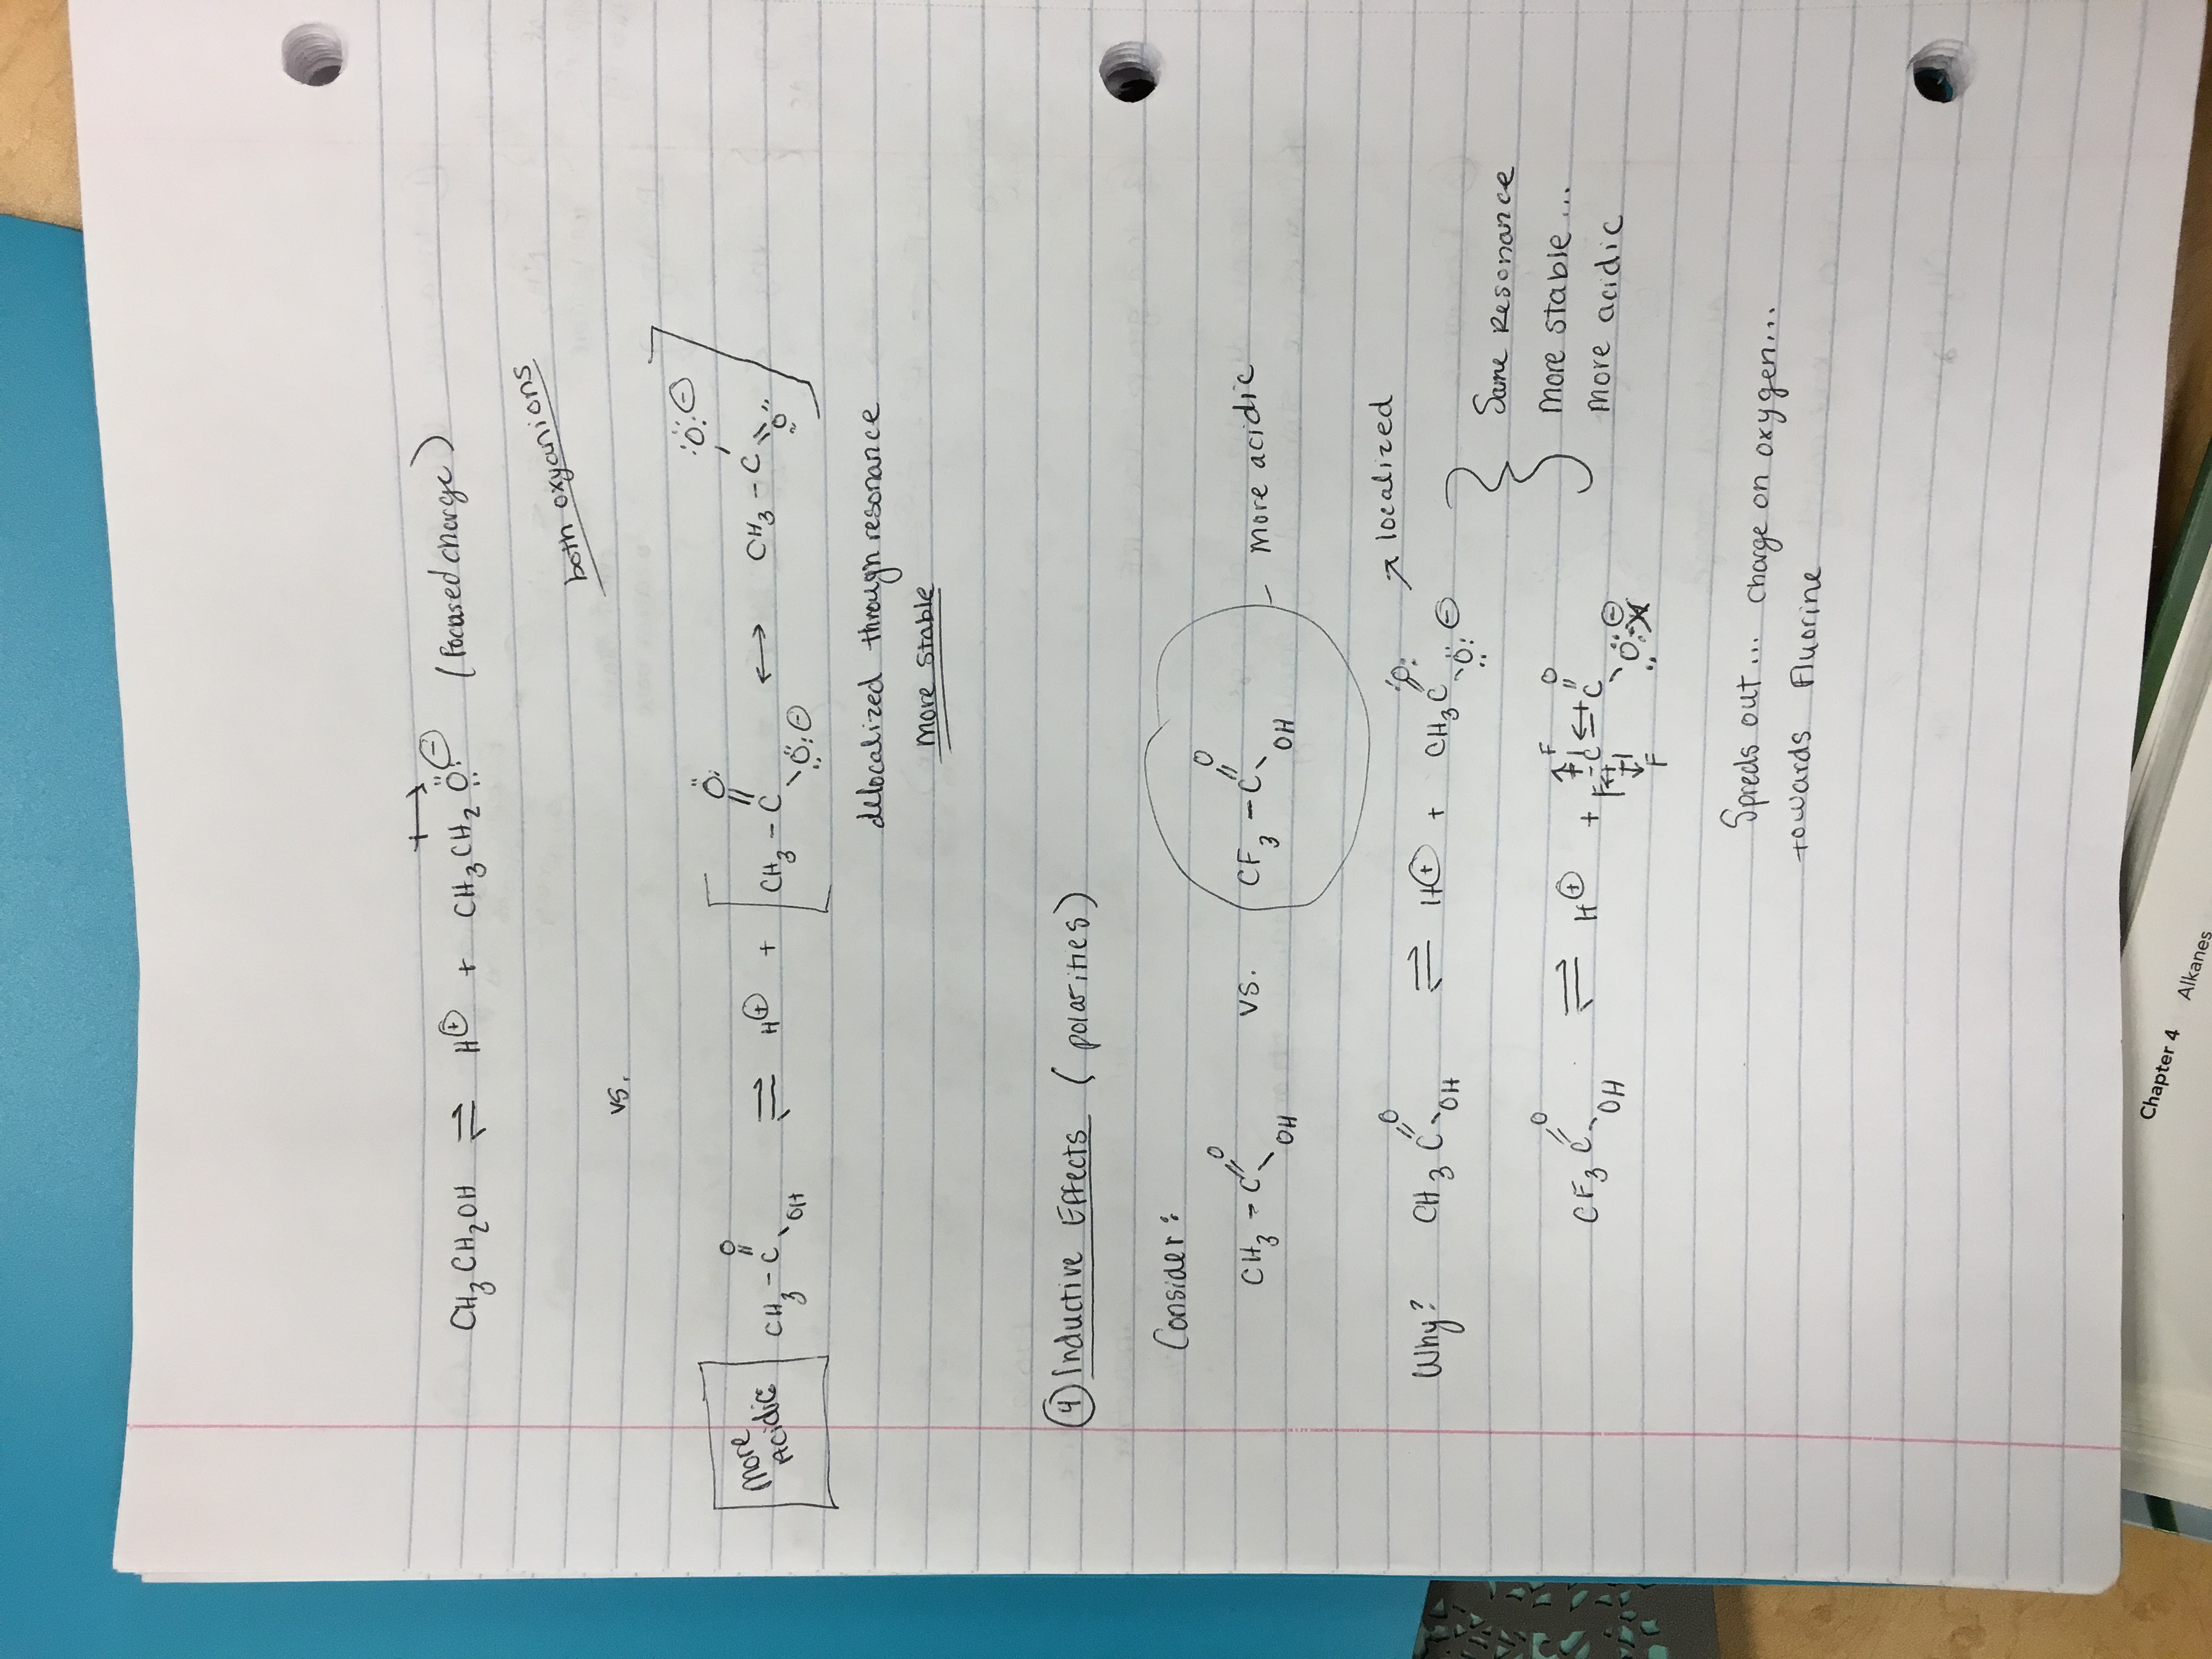 CH₃CH₂OH ⇌ H⊕ + CH₃CH₂Ö:⊖ (focused charge)
both oxyanions
vs.
More Acidic
CH₃-C(=O)-OH ⇌ H⊕ + [CH₃-C(=Ö:)-Ö:⊖ ↔ CH₃-C(-Ö:⊖)=Ö:]
delocalized through resonance
More stable
④ Inductive Effects (polarities)
Consider:
CH₃-C(=O)-OH vs. CF₃-C(=O)-OH - more acidic
↗ localized
Why? CH₃C(=O)-OH ⇌ H⊕ + CH₃C(=Ö:)-Ö:⊖
} Same Resonance
CF₃C(=O)-OH ⇌ H⊕ + F-C(F)(F)-C(=O)-Ö:⊖
More stable...
More acidic
Spreds out... charge on oxygen...
towards Fluorine
Chapter 4 Alkanes